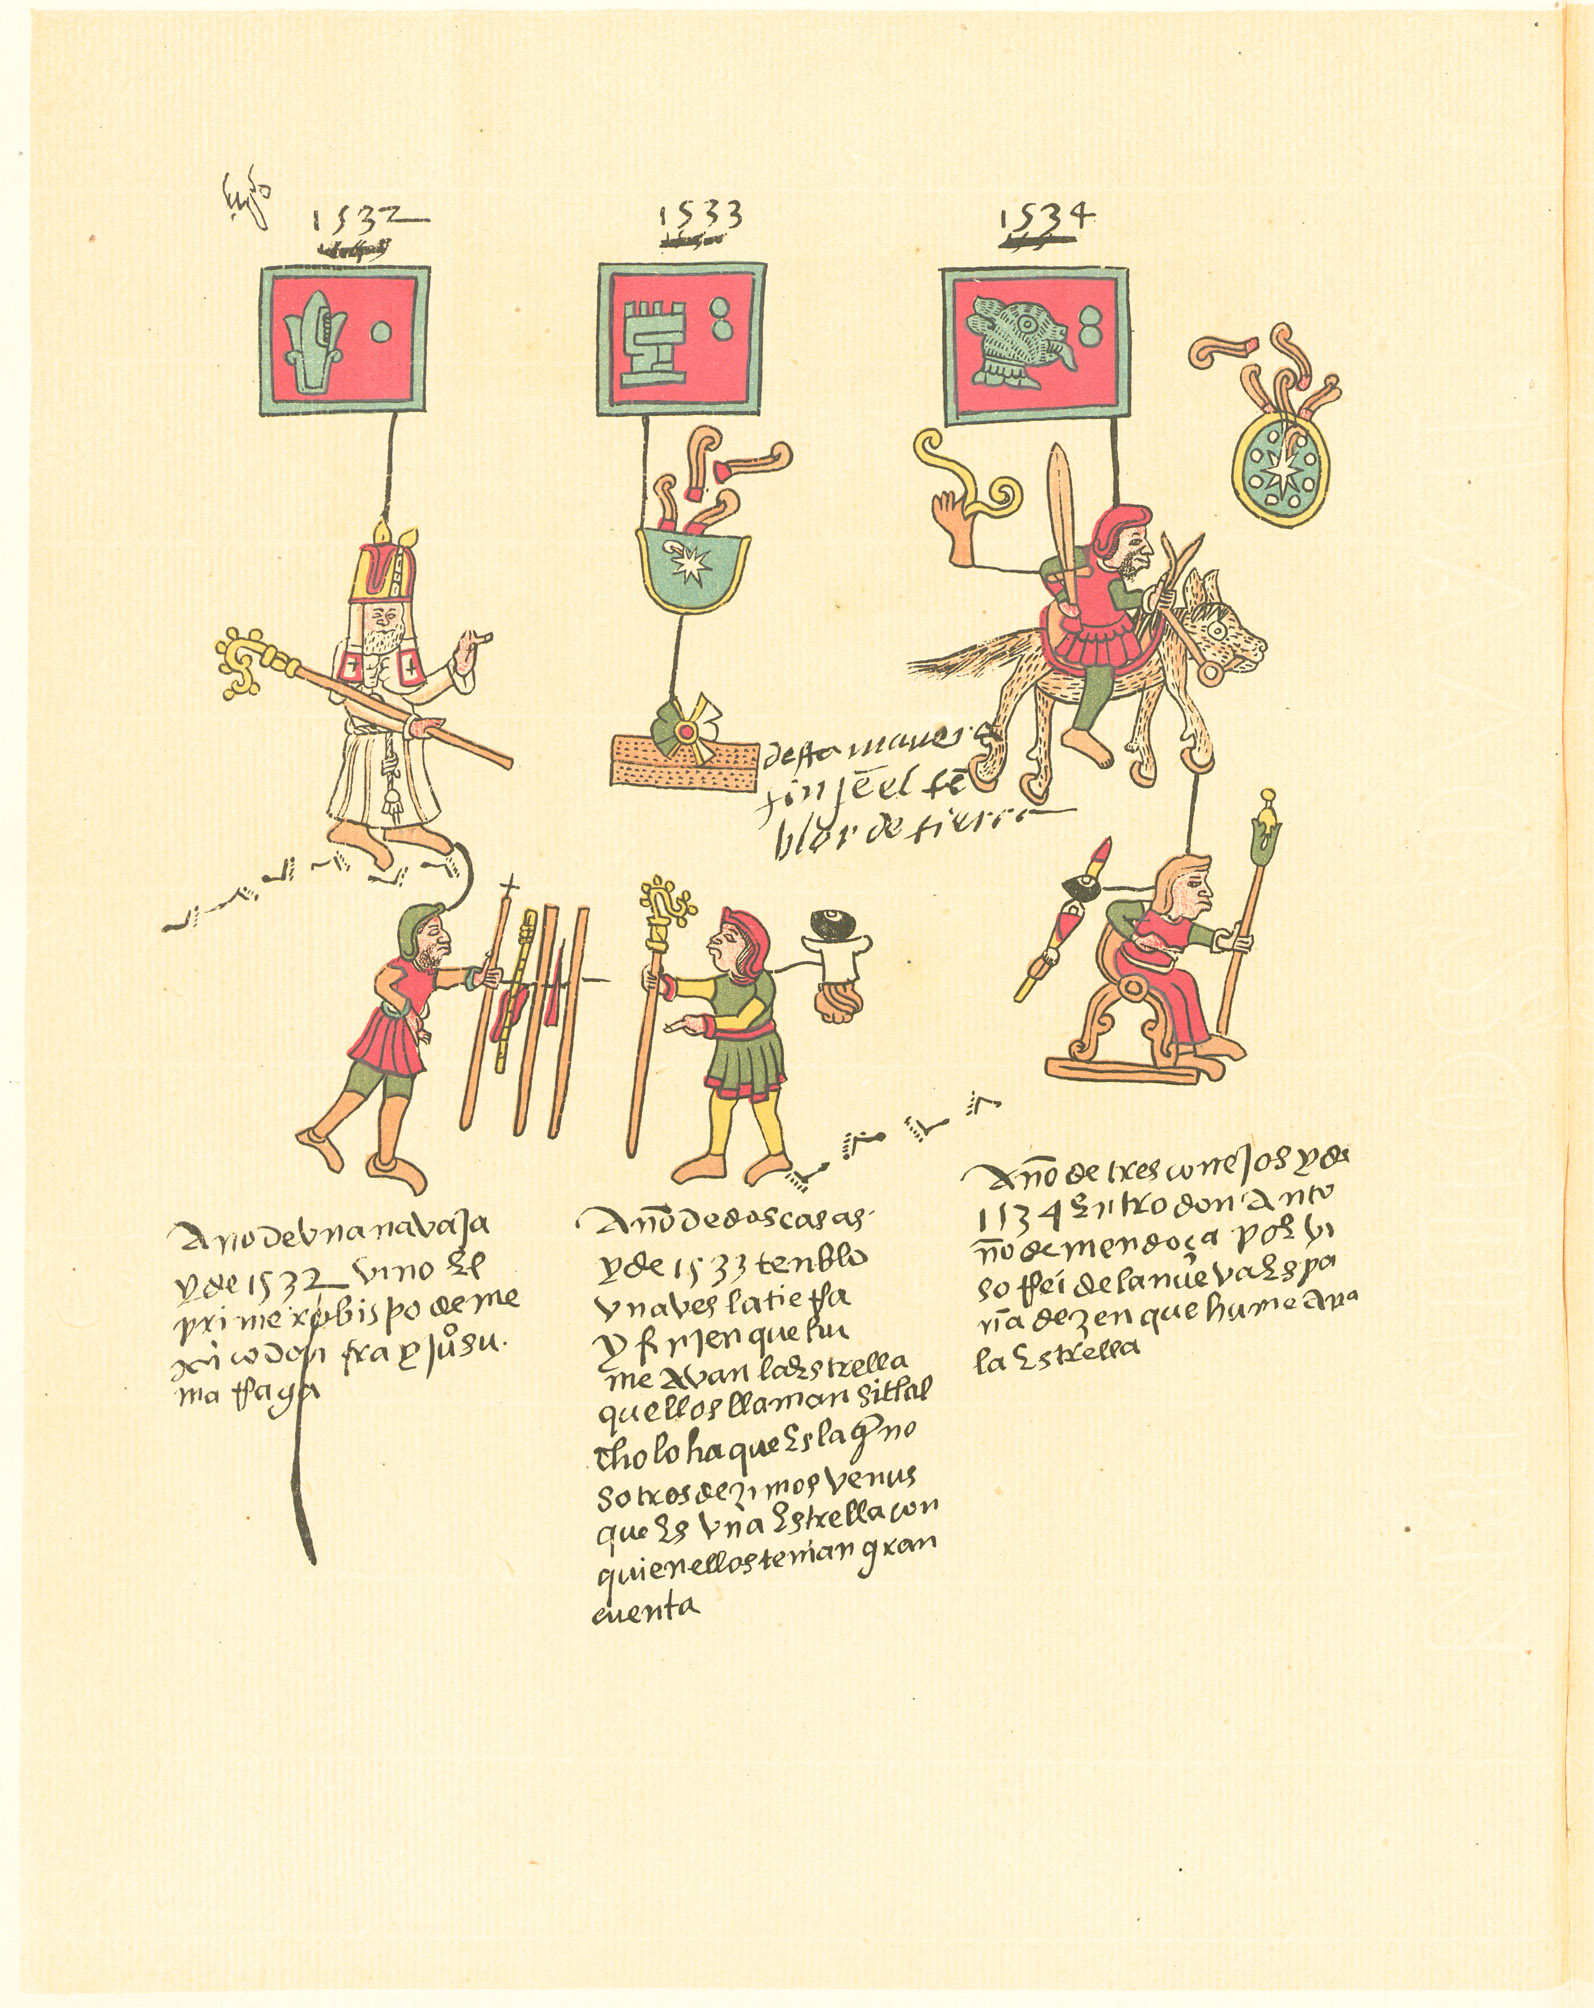 1532
1533
1534
desta manera
finJē el tē
blor de tierra
Año de Una navaJa
y de 1532 vino El
primer obispo de me
xico don fray Juº su
marraga
Año De dos casas
y de 1533 tenblo
vna ves la tierra
y finJen que hu
meAvan la Estrella
quellos llaman sitlal
choloha que Es la q̄ no
sotros dezimos venus
que Es Una Estrella con
quien ellos tenian gran
cuenta
Año de tres coneJos y de
1534 Entro don Anto
ño de mendoça por vi
so rrei de la nueva Espa
ña dezen que humeAva
la Estrella